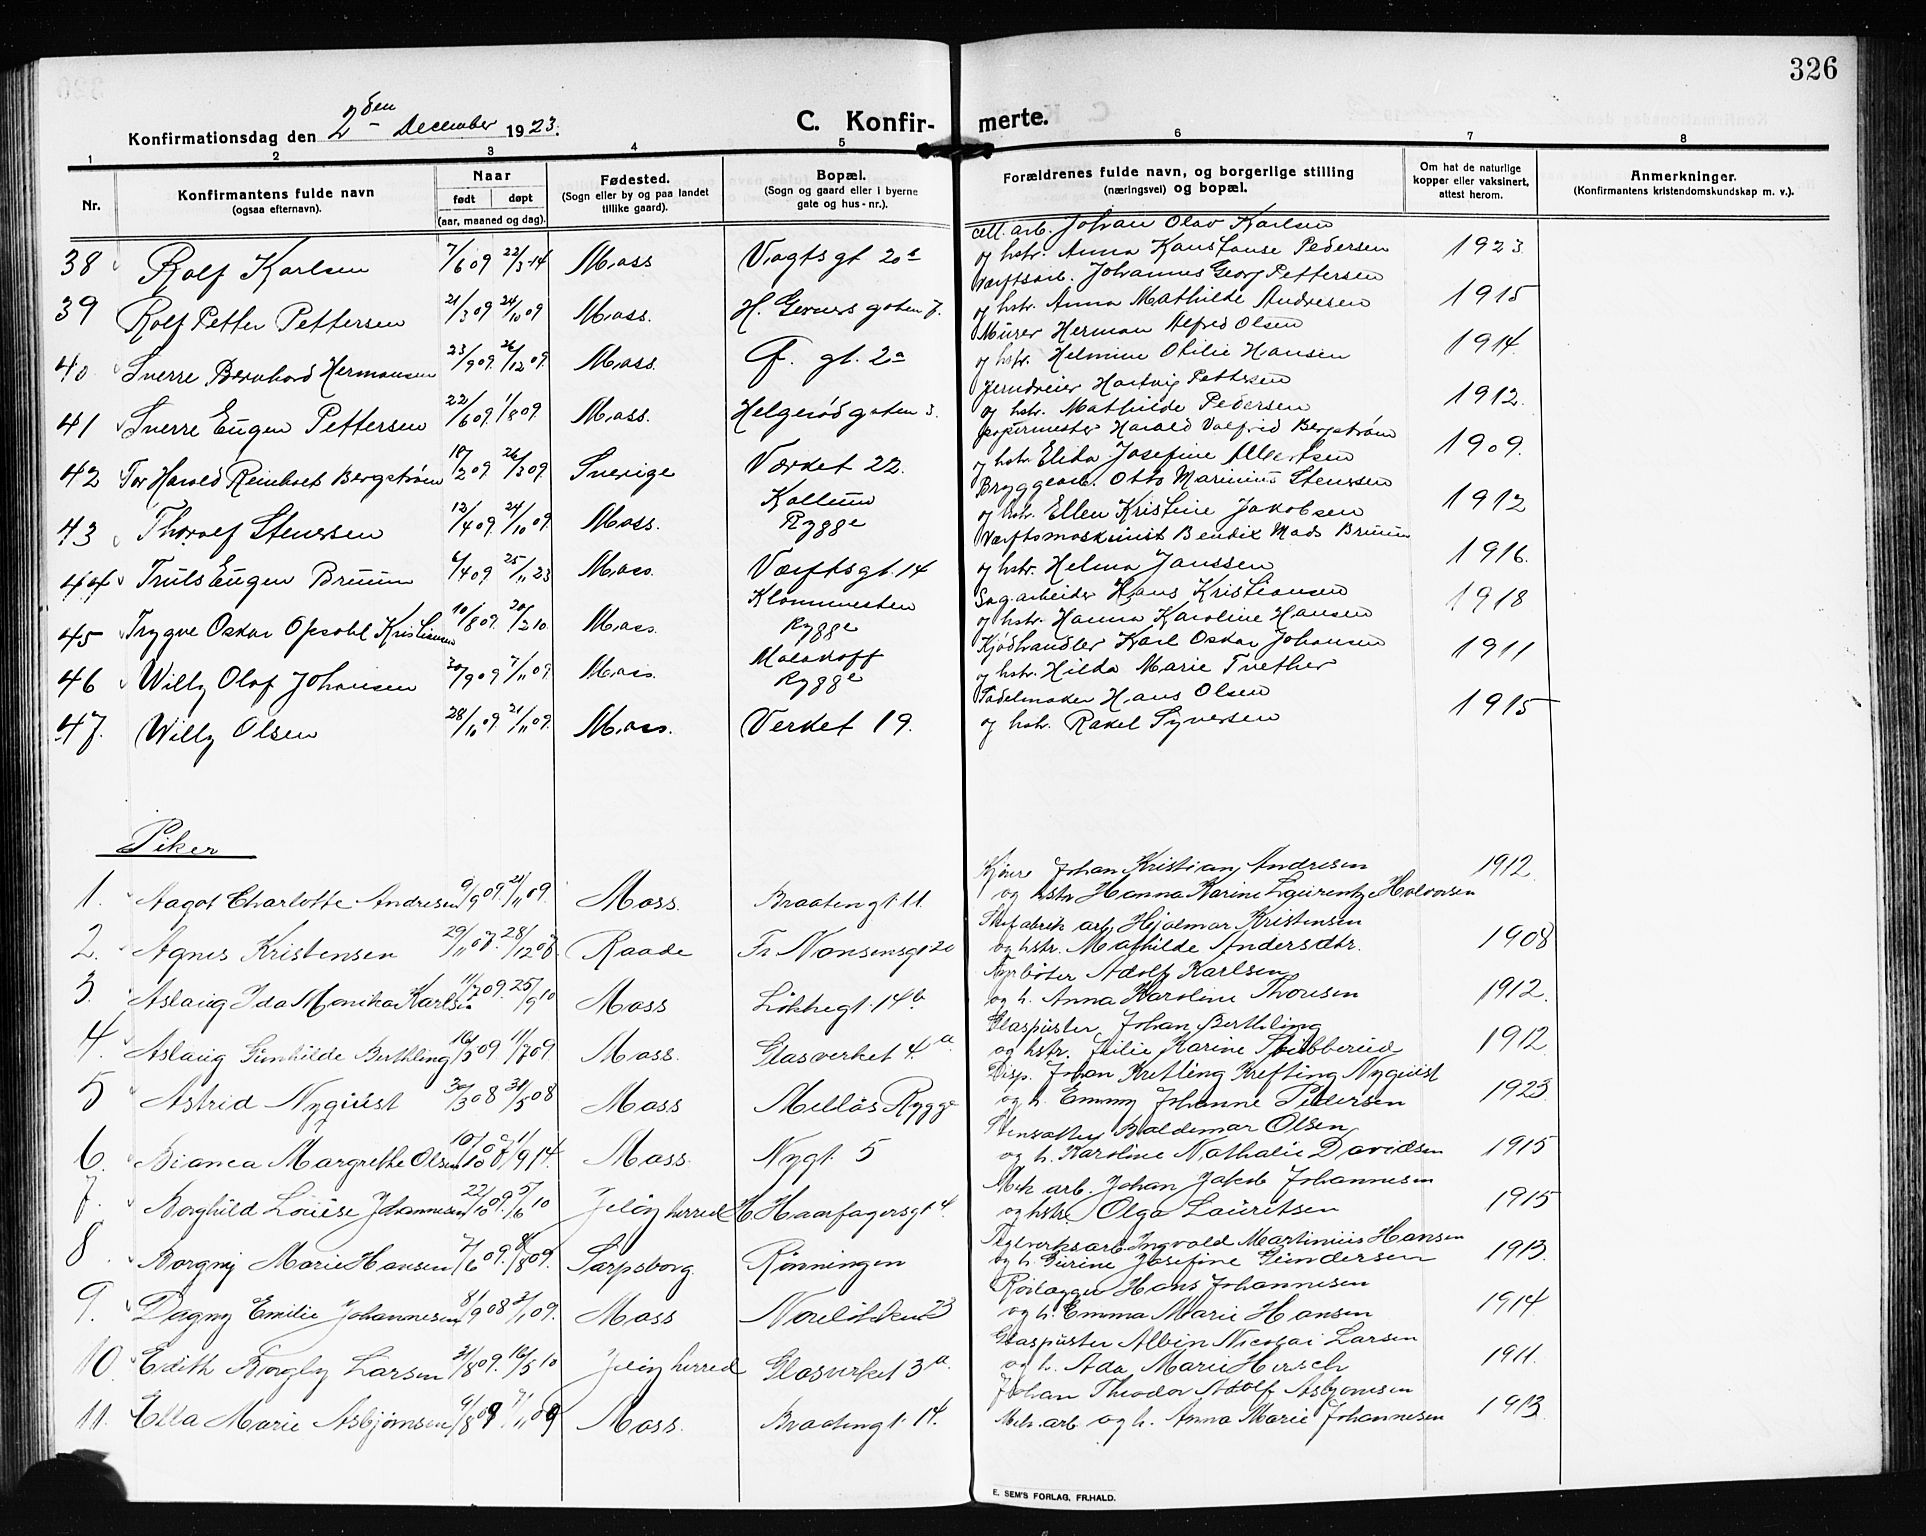 326
Konfirmationsdag den 2den December 1923.
C. Konfir- merte.
1 2 3 4 5 6 7 8
Nr.
Konfirmantens fulde navn
(ogsaa efternavn).
Naar
født døpt
(aar, maaned og dag).
Fødested.
(Sogn eller by og paa landet
tillike gaard).
Bopæl.
(Sogn og gaard eller i byerne
gate og hus-nr.).
Forældrenes fulde navn, og borgerlige stilling
(næringsvei) og bopæl.
Om hat de naturlige
kopper eller vaksinert,
attest herom.
Anmerkninger.
(Konfirmantens kristendomskundskap m. v.).
cell. arb. Johan Olav Karlsen
38 Rolf Karlsen 7/6 09 22/3 14 Moss Vogtsgt 20a og hstr. Anna Konstanse Pedersen 1923
Værftsarb. Johannes Georg Pettersen
39 Rolf Petter Pettersen 21/3 09 24/10 09 Moss. H. Gerners gaten 7. og hstr. Anna Mathilde Andresen 1915
Murer Herman Alfred Olsen
40 Sverre Bernhard Hermansen 23/9 09. 26/12 09. Moss. F. gt. 2a og hstr. Helmine Otilie Hansen 1914.
Jerndreier Hartvig Pettersen
41 Sverre Eugen Pettersen 22/6 09. 1/8 09 Moss. Helgerødgaten 3. og hstr. Mathilde Pedersen 1912.
papirmester Harald Valfrid Bergstrøm
42 Tor Harald Reinholt Bergstrøm 18/2 09 26/3 09. Sverige Værket 22. og hstr. Elida Josefine Albertsen 1909.
Bryggearb. Otto Marinius Stenersen
43 Thoralf Stenersen 12/4 09. 24/10 09. Moss. Kallum Rygge og hstr. Ellen Kristine Jakobsen 1912
Værftsmaskinist Bendix Mads Bruun
44 Truls Eugen Bruun 6/4 09 25/11 23 Moss. Værftsgt. 14 og hstr. Helma Janssen 1916.
Sagarbeider Hans Kristiansen
45 Trygve Oskar Opsahl Kristiansen 10/8 09. 20/2 10. Moss. Klommesten Rygge og hstr. Hanna Karoline Hansen 1918
Kjødhandler Karl Oskar Johansen
46 Willy Olaf Johansen 20/9 09 7/11 09. Moss. Malakoff Rygge og hstr. Hilda Marie Tvether 1911
Sadelmaker Hans Olsen
47. Willy Olsen 28/10 09. 21/11 09. Moss. Verket 19. og hstr. Rakel Syversen 1915
Piker
Kjører Johan Kristian Andresen
1. Aagot Charlotte Andresen 9/9 09. 21/11 09. Moss. Braatengt 11. og hstr Hanna Karine Laurentze Halvorsen 1912.
Skofabrik arb. Hjalmar Kristensen
2. Agnes Kristensen 29/11 07. 28/12 07. Raade Fr. Nansensgt 20 og hstr. Mathilde Andersdtr. 1908
Fyrbøter Adolf Karlsen
3. Aslaug Ida Monika Karlsen 11/7 09. 25/9 10 Moss Løkkegt. 14b og h. Anna Karoline Thoresen 1912.
Glaspuster Johan Berthling
4. Aslaug Gunhilde Berthling 16/5 09. 11/7 09. Moss. Glasverket 4.a og hstr. Julie Karine Stubberud 1912.
Disp. Johan Kretling Krefting Nyquist
5 Astrid Nyquist 30/3 08 31/5 08 Moss Melløs Rygge og h. Emmy Johanne Pedersen 1923.
Stensætter Baldemar Olsen
6. Bianca Margrethe Olsen 10/10 08 11/9 14. Moss. Nygt. 5 og h. Karoline Nathalie Davidsen 1915
Mek arb. Johan Jakob Johannesen
7. Borghild Louise Johannesen 22/10 09. 5/6 10 Jeløy herred H. Haarfagersgt 4. og hstr. Olga Lauritsen 1915
Teglverksarb. Ingvald Martinius Hansen
8. Borgny Marie Hansen 7/6 09. 8/8 09. Sarpsborg. Rønningen og h. Gurine Josefine Gundersen 1913.
Rørlægger Hans Johannesen
9. Dagny Emilie Johannesen 8/9 08 3/1 09. Moss Noreløkken 23 og h. Emma Marie Hansen 1914.
Glaspuster Albin Nicolai Larsen
10. Edith Borgly Larsen 31/8 09. 16/5 10 Jeløy herred Glasverket 3a. og h. Ada Marie Hirsch 1911.
Johan Theodor Adolf Asbjørnsen
11. Ella Marie Asbjørnsen 9/8 09 7/11 09 Moss. Braatengt. 14. Mek. arb og h. Anna Marie Johannesen 1913.
E. SEM'S FORLAG, FR.HALD.